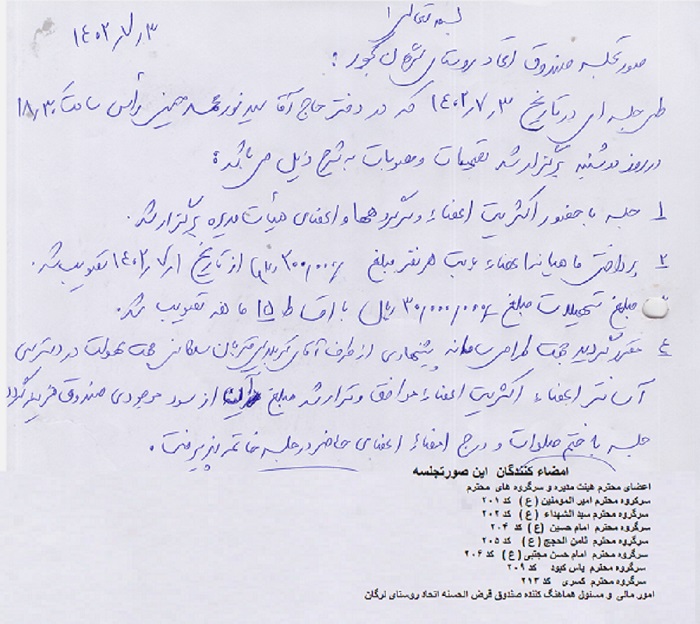 بسمه تعالی
۱۴۰۲/۷/۳
صورتجلسه صندوق اتحاد روستای نرگان کجور :
طی جلسه ای در تاریخ ۱۴۰۲/۷/۳ که در دفتر حاج آقا سید نورمحمد حسینی رأس ساعت ۱۸/۳۰
در روز دوشنبه برگزار شد تصمیمات و مصوبات به شرح ذیل می باشد :
۱ جلسه با حضور اکثریت اعضاء و سرگروهها و اعضای هیأت مدیره برگزار شد.
۲ پرداختی ماهیانه اعضاء بابت هر نفر مبلغ ریال از تاریخ ۱۴۰۲/۷/۱ تصویب شد.
مبلغ تسهیلات مبلغ ۳۰/۰۰۰/۰۰۰ ریال با اقساط ۱۵ ماهه تصویب شد.
۴ مقرر گردید جهت طراحی سامانه پیشنهادی از طرف آقای جهت سهولت در دسترسی
آسانتر اعضاء اکثریت اعضاء موافق و قرار شد مبلغ آن از سود موجودی صندوق هزینه گردد
جلسه با ختم صلوات و درج امضاء اعضای حاضر در جلسه خاتمه پذیرفت.
امضاء کنندگان این صورتجلسه
اعضای محترم هیئت مدیره و سرگروه های محترم
سرگروه محترم امیر المومنین (ع) کد ۲۰۱
سرگروه محترم سید الشهداء (ع) کد ۲۰۲
سرگروه محترم امام حسین (ع) کد ۲۰۴
سرگروه محترم ثامن الحجج (ع) کد ۲۰۵
سرگروه محترم امام حسن مجتبی (ع) کد ۲۰۶
سرگروه محترم یاس کبود کد ۲۰۹
سرگروه محترم کسری کد ۲۱۳
امور مالی و مسئول هماهنگ کننده صندوق قرض الحسنه اتحاد روستای لرگان